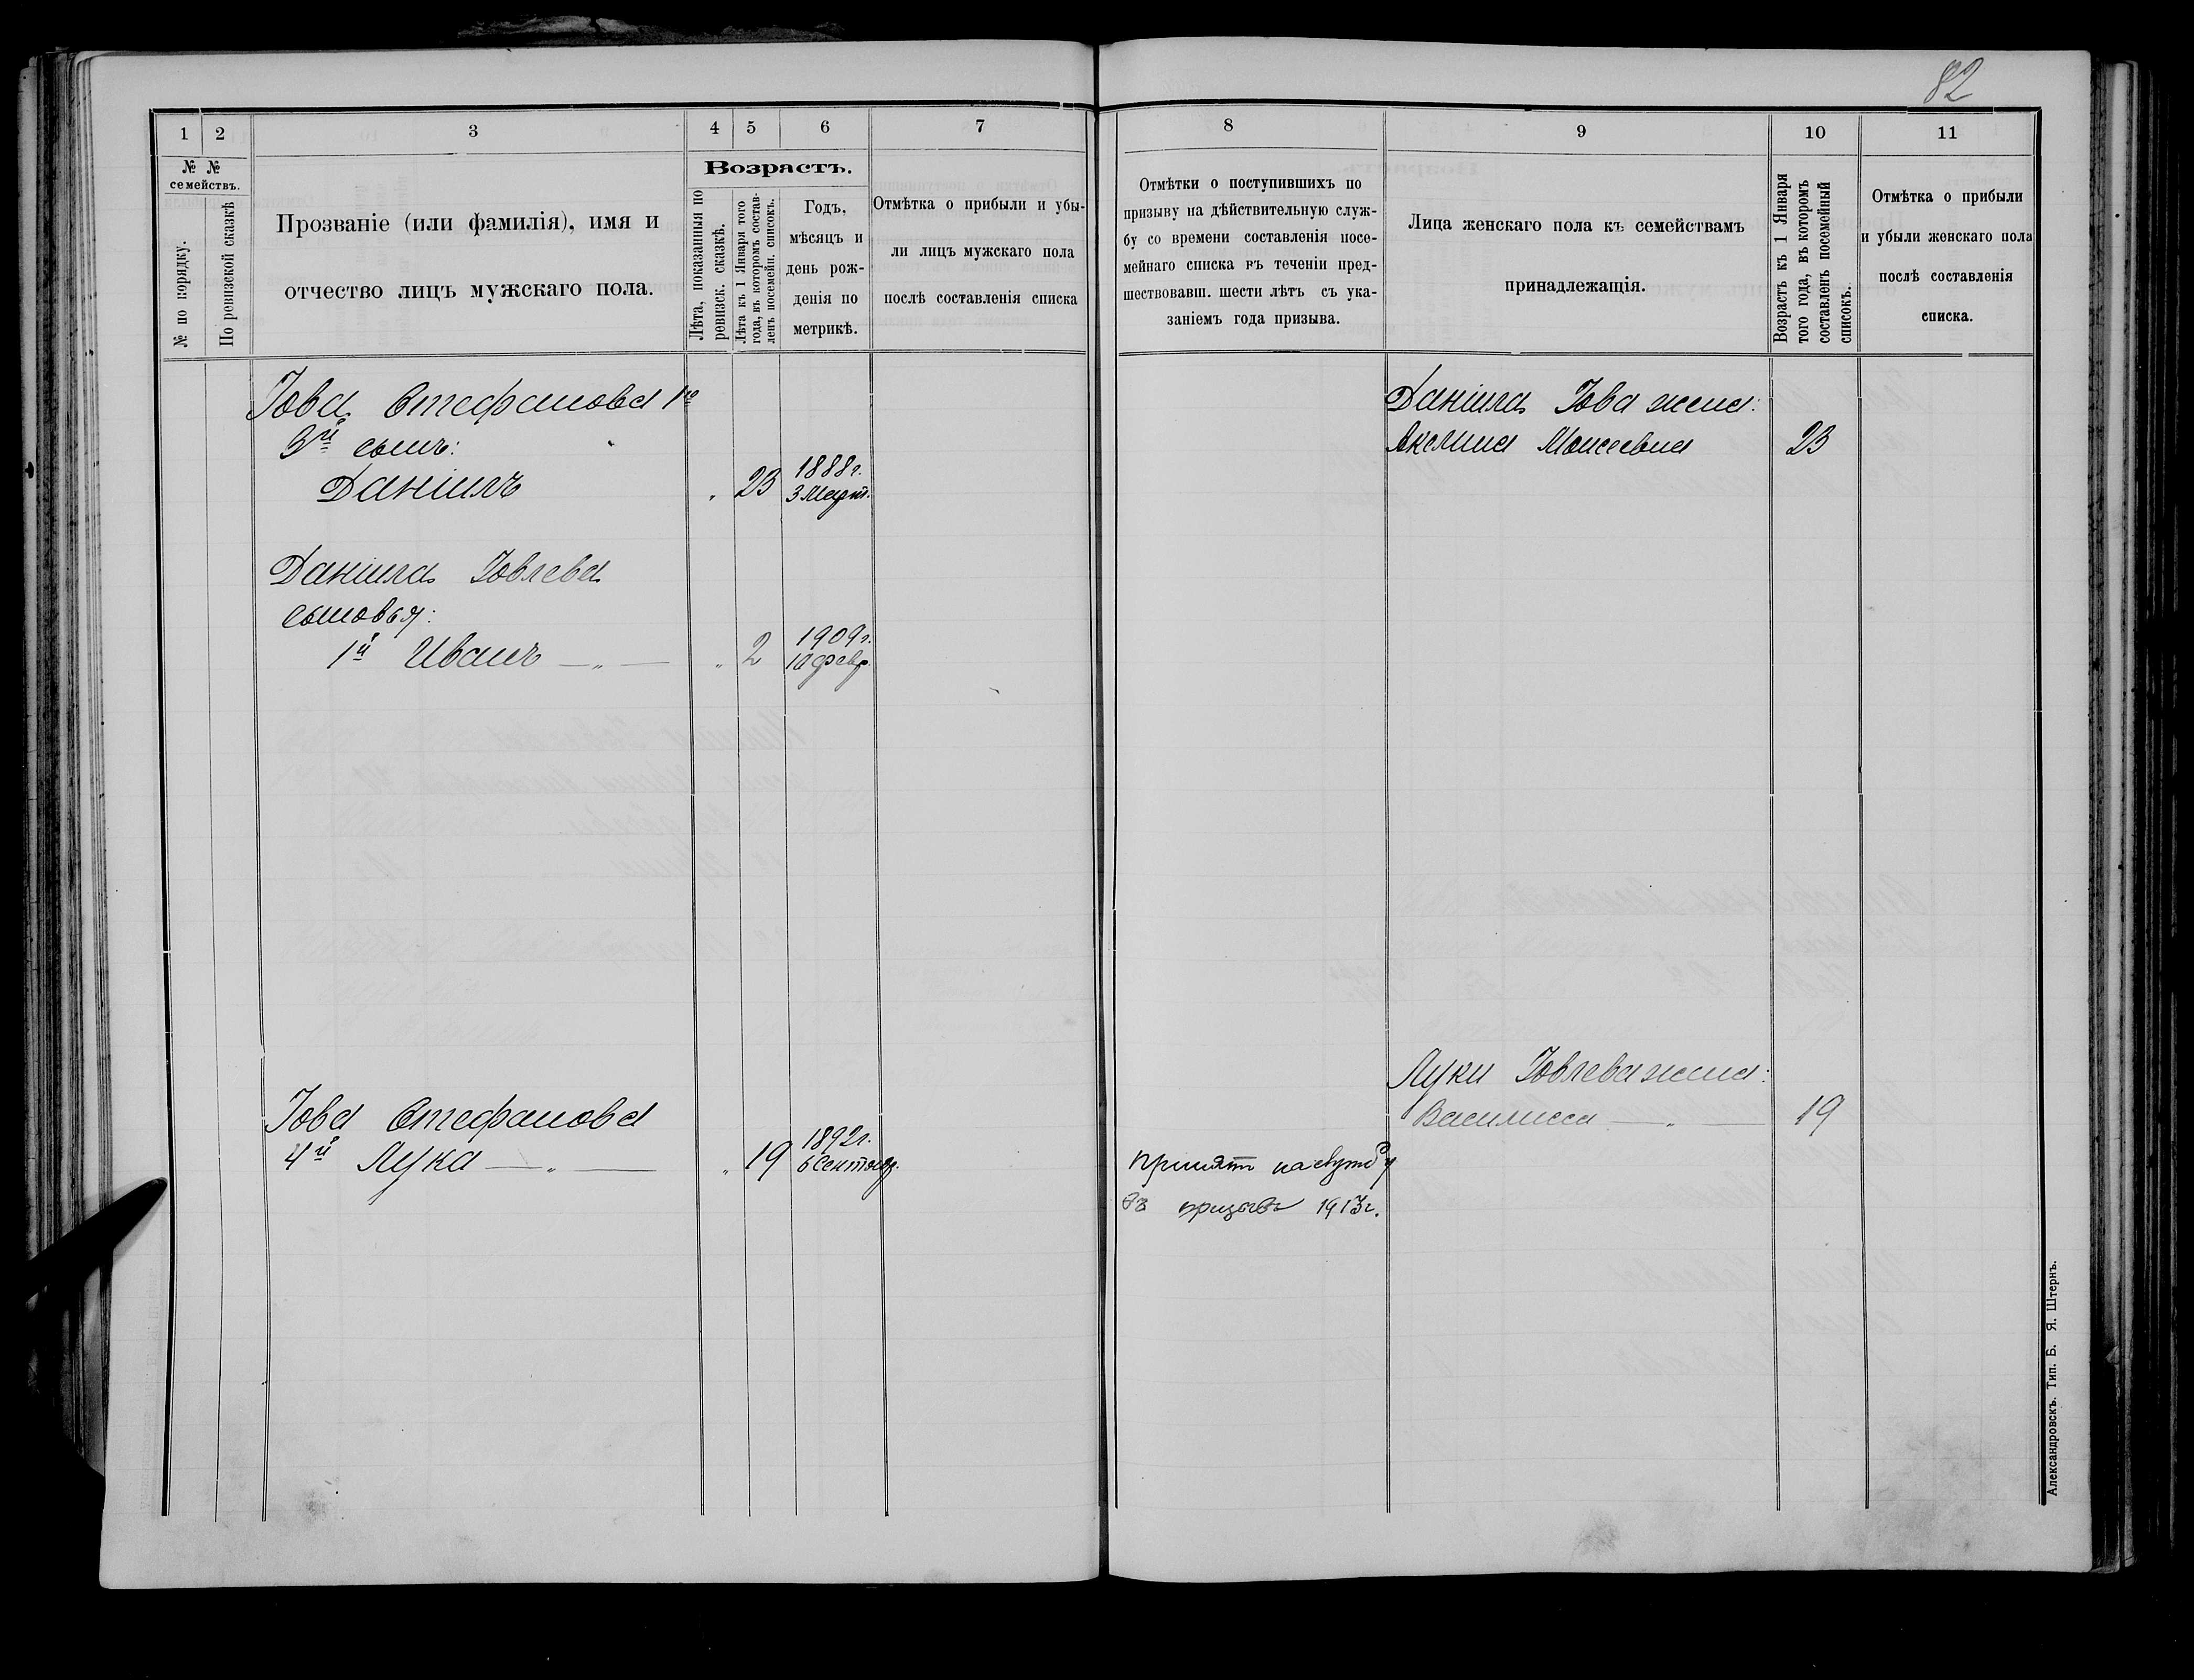 82
1
2
3
4
5
6
7
№ №
семействъ.
№ по порядку.
По ревизской сказкѣ
Прозваніе (или фамилія), имя и
отчество лицъ мужскаго пола.
Возрастъ.
Лѣта, показанныя по
ревизск. сказкѣ.
Лѣта къ 1 Января того
года, въ которомъ состав-
ленъ посемейн. списокъ.
Годъ,
мѣсяцъ и
день рож-
денія по
метрикѣ.
Отмѣтка о прибыли и убы-
ли лицъ мужскаго пола
послѣ составленія списка
Іова Стефанова 1го
3й сынъ:
Даніилъ " 23 1888г.
3 Март.
Даніила Іовлева
сыновья:
1й Иванъ — " — " 2 1909г.
10 февр.
Іова Стефанова
4й Лука — " — " 19 1892г.
6 Сентябр.
8
9
10
11
Отмѣтки о поступившихъ по
призыву на дѣйствительную служ-
бу со времени составленія посе-
мейнаго списка въ теченіи пред-
шествовавш. шести лѣтъ съ ука-
заніемъ года призыва.
Лица женскаго пола къ семействамъ
принадлежащія.
Возрастъ къ 1 Января
того года, въ которомъ
составленъ посемейный
списокъ.
Отмѣтка о прибыли
и убыли женскаго пола
послѣ составленія
списка.
Даніила Іова жена:
Акелина Моисеевна 23
Луки Іовлева жена:
Василисса — " — 19
принят на службу
въ призывъ 1913г.
Александровскъ. Тип. Б. Я. Штернъ.